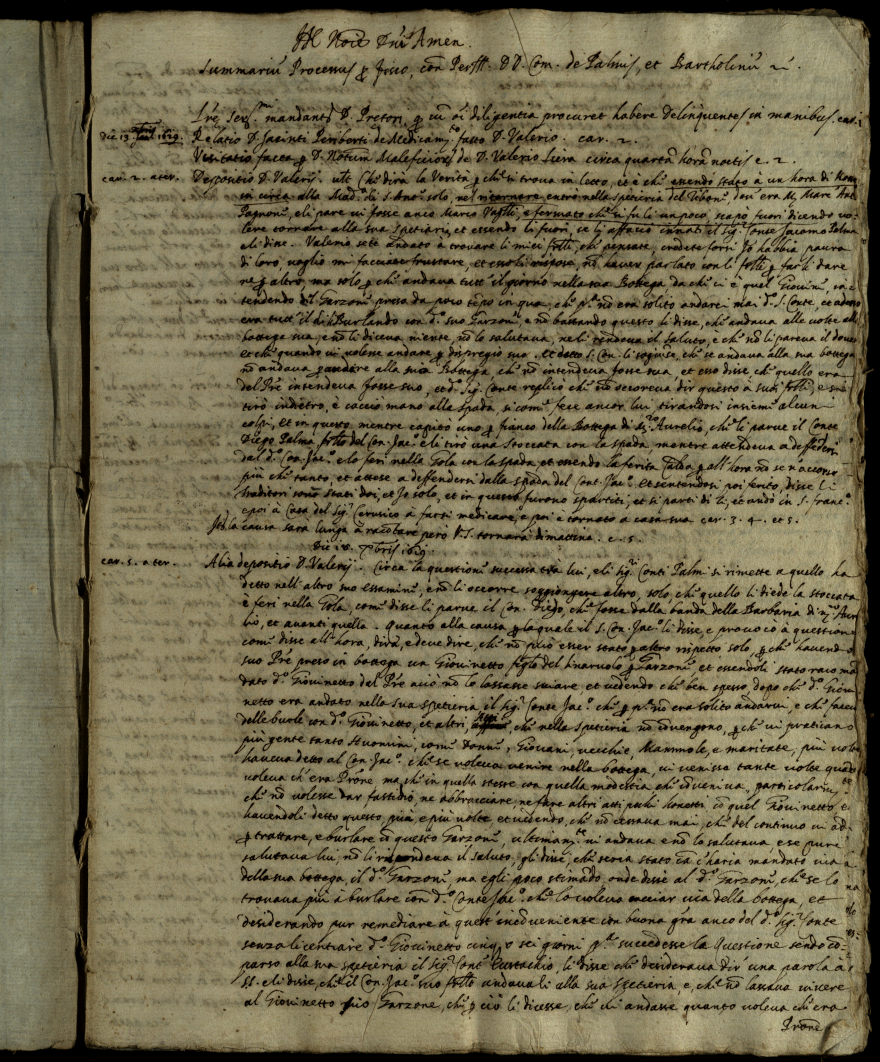 Noie Dni Amen.
Summariu Processus p fisco, con Perill. DD. Com. de Palmis, et Bartholinu
mandants D. Pretori, q cu oi diligentia procuret habere Delinquentes in manibus
Die 13 1629. Relatio D. Jacinti Periberti de Medicam.to fatto D. Valerio. car. 2.
Visitatio facta p D. Notum Maleficioru de D. Valerio Livra circa quarta hora noctis c. 2.
car. 2. a ter. Depositio D. Valerij. ult. Che dirà la Verità p che si trova in letto, et è che essendo stato à un hora di Notte
in circa alla Mad.a di S. Ant.o solo, nel ritornare, entrò nella spetieria del dovi era M. Marc Ant.
et li pare vi fosse anco Marco e fermato che vi fu li un poco, scapò fuori dicendo vo=
lere tornare alla sua Spetiaria, et essendo li fuori, se li affacio innati il Sig.r Conte Jacomo Palma
e li disse. Valerio sete andato à trovare li miei frlli, che pensate, credete forsi Jo habbia paura
di loro, voglio mi facciate frustare, et esso li rispose, nõ haver parlato con li frlli p farli dare
ne p altro, ma solo p che andava tutt' il giorno nella sua Bottega da che ci è quel Giovine, in=
tendendo del Garzone preso da poco tepo in qua, che p.a nõ era solito andarci mai d.o S. Conte, et adesso
era tutt' il di li Burlando con d.o suo Garzone, e nõ bastando questo li disse, che andava alle volte alla
bottega sua, e nõ li diceva niente, nõ lo salutava, ne li rendeva il saluto, e che nõ li pareva il dovere
et che quando vi volesse andare p dispregio suo. Et detto S. Con. li sogiuse, che se andava alla sua bottega
nõ andava p andare alla sua Bottega, che nõ intendeva fosse sua, et esso disse che quello era
del Pre intendeva fosse suo, et d.o Sig. Conte replicò che nõ occoreva dir questo à suoi frlli, e si
tirò indietro, è cacciò mano alla spada, si come fece ancor lui, tirandosi insieme alcuni
colpi, et in questo mentre capitò uno p fianco della Bottega di M.o Aurelio, che li parve il Conte
Diego Palma frllo del Con. Jac.o e li tirò una Stoccata con la spada, mentre attendeva a deffedersi
dal d.o Con. Jac.o e lo ferì nella Gola con la spada, et essendo la ferita calda p all' hora nõ se n'accorse
più che tanto, et attese a deffendersi dalla spada del Cont. Jac.o Et sentendosi poi ferito, disse li
traditori sono stati doi, et Jo solo, et in questo furono spartiti, et si partì di li, et andò in S. franc.o
e poi à Casa del Sig.r Cerusico à farsi medicare, e poi è tornato a casa sua car. 3. 4. et 5.
la causa sarà lunga à racotare però V.S. tornarà dimattina. c. 5.
Die 14. Xbris 1629
car. 5. a ter. Alia depositio D. Valerij. Circa la questione successa tra lui, e li Sig.ri Conti Palmi si rimette a quello ha
detto nell' altro suo essamine, e nõ li occorre soggiongere altro, solo, che quello li diede la stoccata
è ferì nella Gola, come disse li parve il Con. Diego, che fosse dalla banda della Barbaria di M.o Aure=
lio, et avanti quella. Quanto alla causa p la quale il S. Con. Jac.o li disse, e provocò à questione
come disse all' hora, dirà, e deve dire, che nõ può esser stato p altro rispetto solo, p che havendo
suo Pre preso in bottega un Giovinetto figlo del p Garzone, et essendoli stato racoman=
dato d.o Giovinetto dal Pre aciò nõ lo lassasse sviare, et vedendo che ben spesso, dopo che d.o Giovi=
netto era andato nella sua spetieria il Sig.r Conte Jac.o che p p.a nõ era solito andarvi, e che faceva
delle burle con d.o Giovinetto, et altri, che nella spetieria nõ couvengono, p che vi praticano
più gente tanto Huomini, come Donne, Giovani, vecchie, Mammole, e maritate, più volte
haveva detto al Con. Jac.o che se voleva venire nella bottega, vi venisse tante volte quante
voleva ch'era Prone ma che in quella stesse con quella modestia che couveniva, particolarmte
che nõ volesse dar fastidio, ne abbracciare, ne fare altri atti pochi honesti co quel Giovinetto, e
havendoli detto questo, più e più volte et vedendo, che nõ cessava mai, che del continuo vi and.
p trattare, e burlare co questo Garzone, ultimam.te vi andava e nõ lo salutava e se pure
salutava lui, nõ li rispondeva il saluto, gli disse, che seria stato ca c'haria mandato via
della sua bottega, il d.o Garzone, ma egli poco stimado, onde disse al d.o Garzone, che se lo
trovava più à burlare con d.o Conte Jac.o che lo voleva cacciar via della bottega, et
desiderando pur remediare à quest' incouveniente con buona gra anco del d.o Sig.r Conte
senza licentiare d.o Giovinetto cinq o sei giorni p.a succedesse la Questione sendo co=
parso alla sua spetieria il Sig.r Conte Eustachio, li disse che desiderava dir una parola à
SS. e li disse, che il Con. Jac.o suo frllo andava li alla sua Spetieria, e, che nõ lassava vivere
al Giovinetto suo Garzone, che p ciò li dicesse, che vi andasse quanto voleva che era
Prone